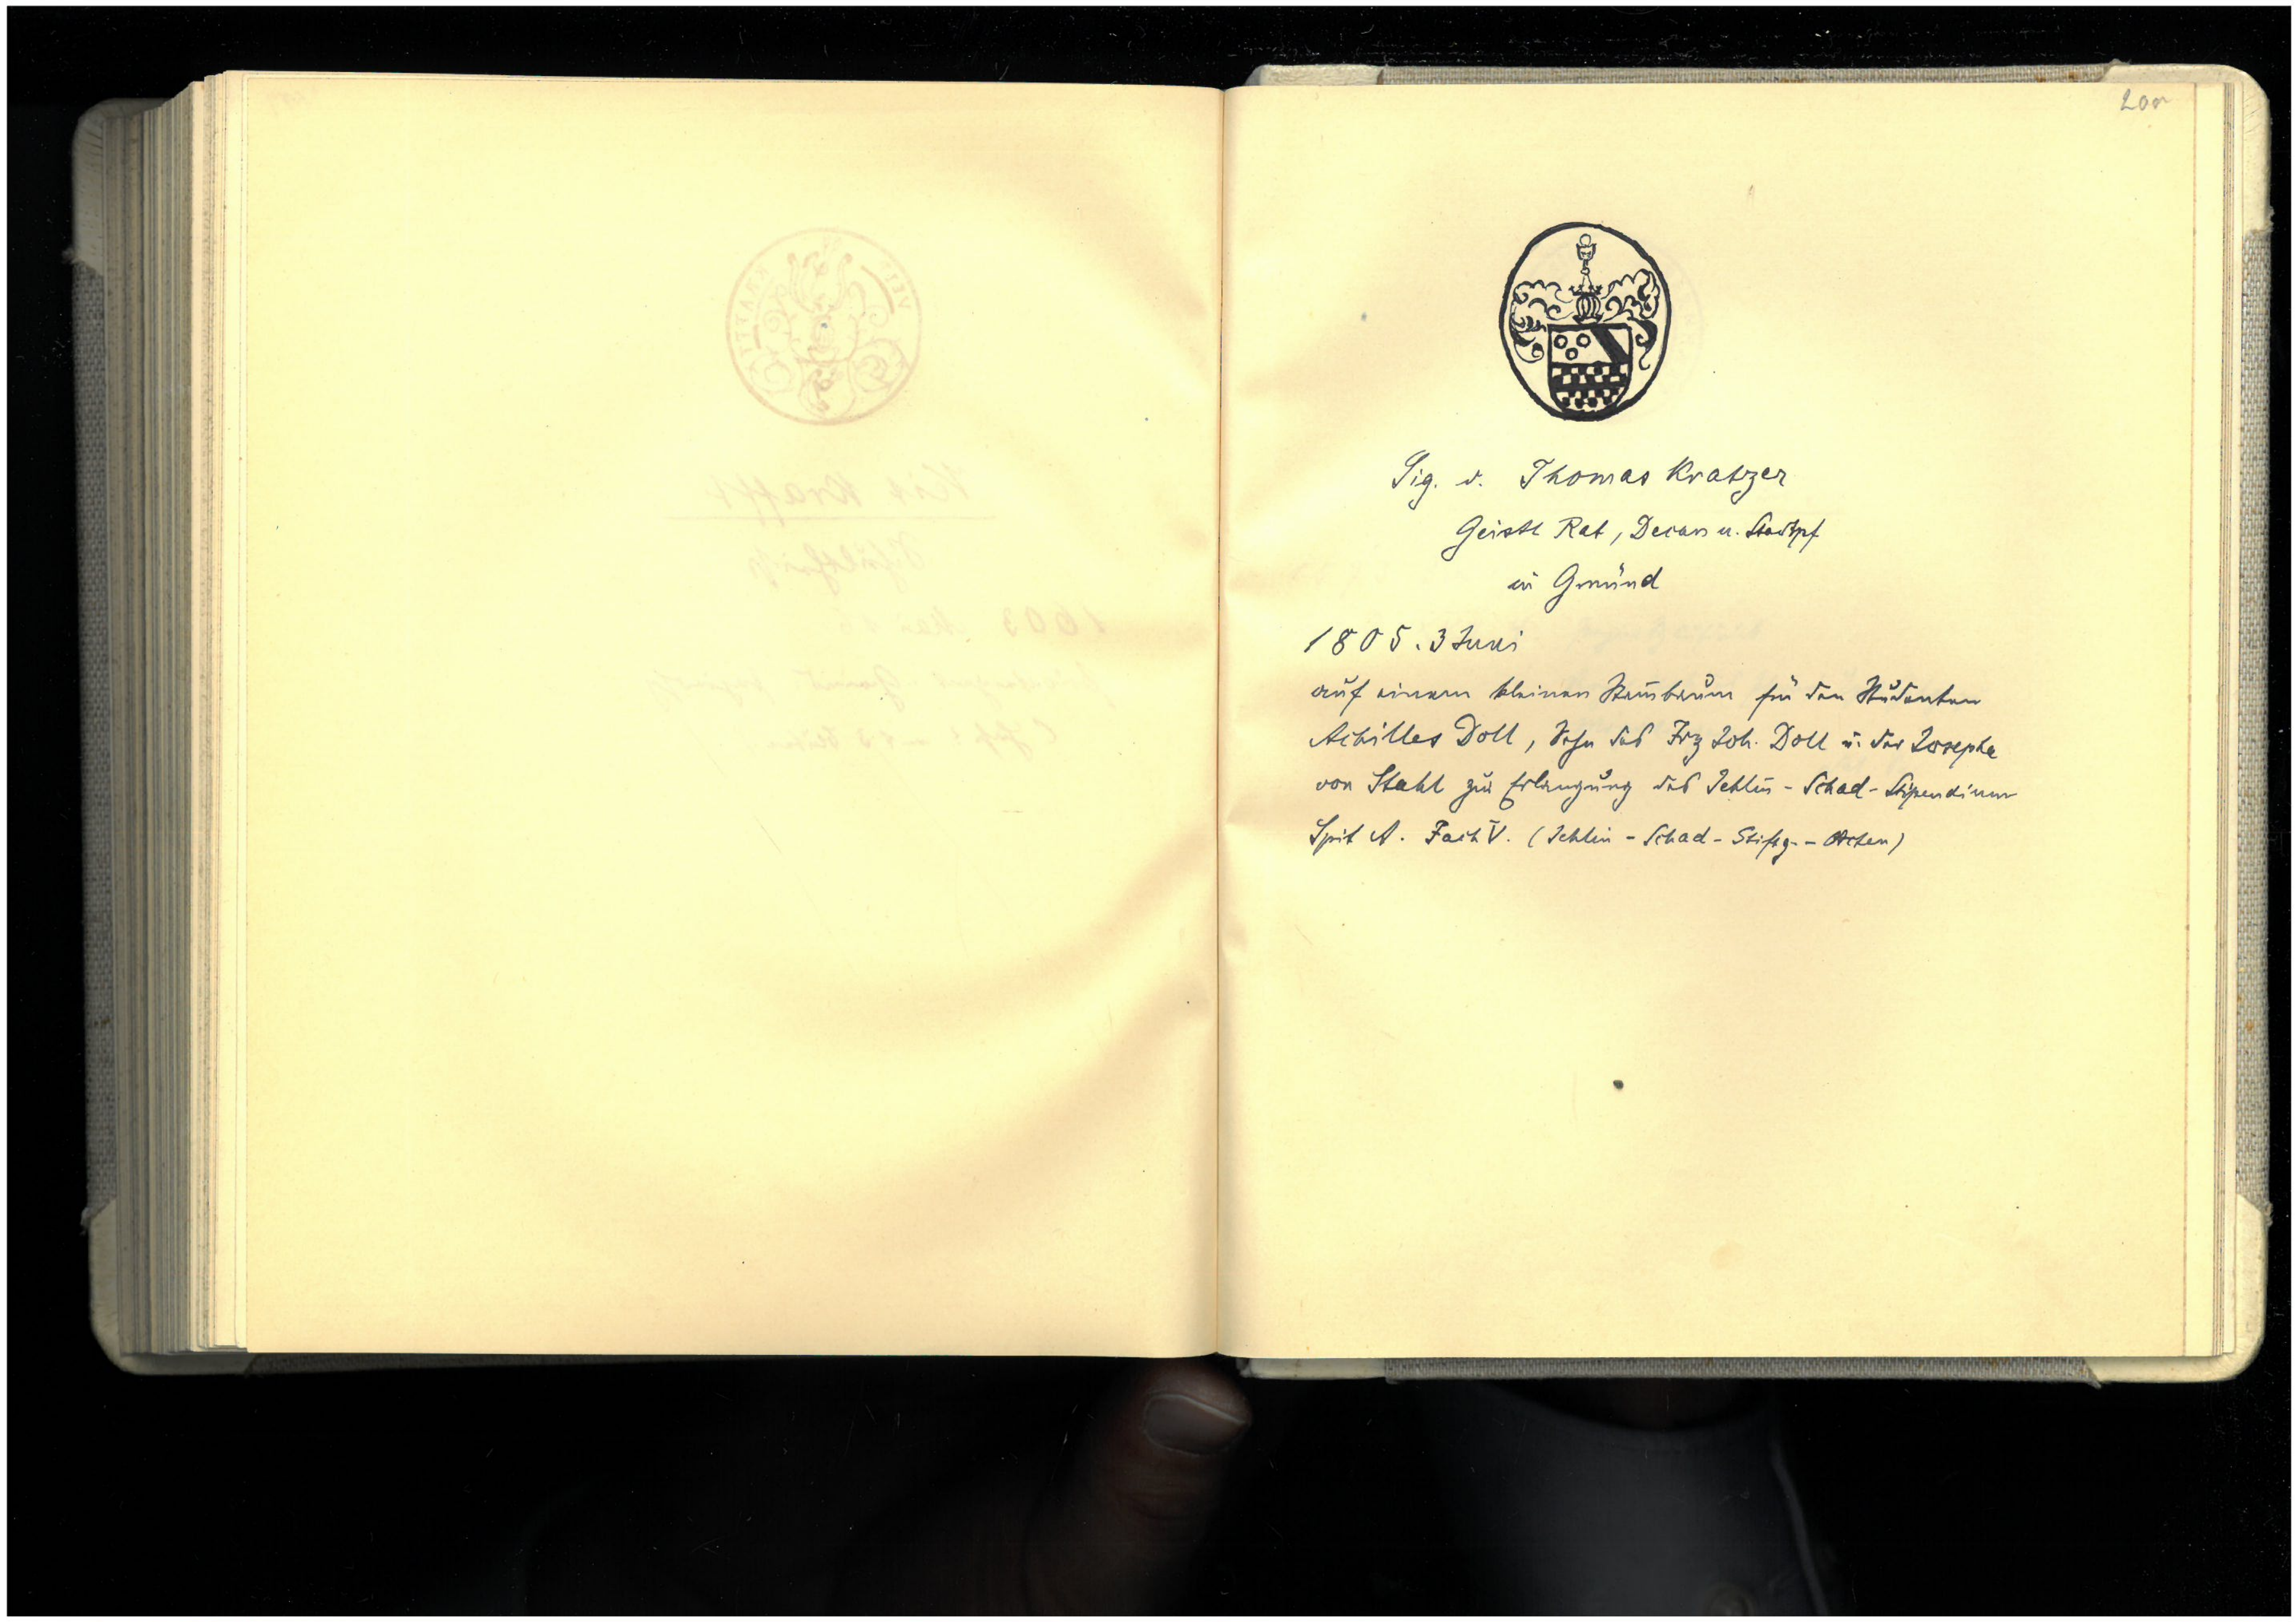 200
Sig. v. Thomas Kratzer
Geistl Rat, Decan u. Stadtpf
in Gmünd
1805. 3 Juni
auf einem kleinen Stambaum für den Studenten
Achilles Doll, Sohn des Frz Joh. Doll u. der Josepha
von Stahl zur Erlangung des Jehlin-Schad-Stipendium
Spit A. Fach V. (Jehlin-Schad-Stiftg.-Acten)